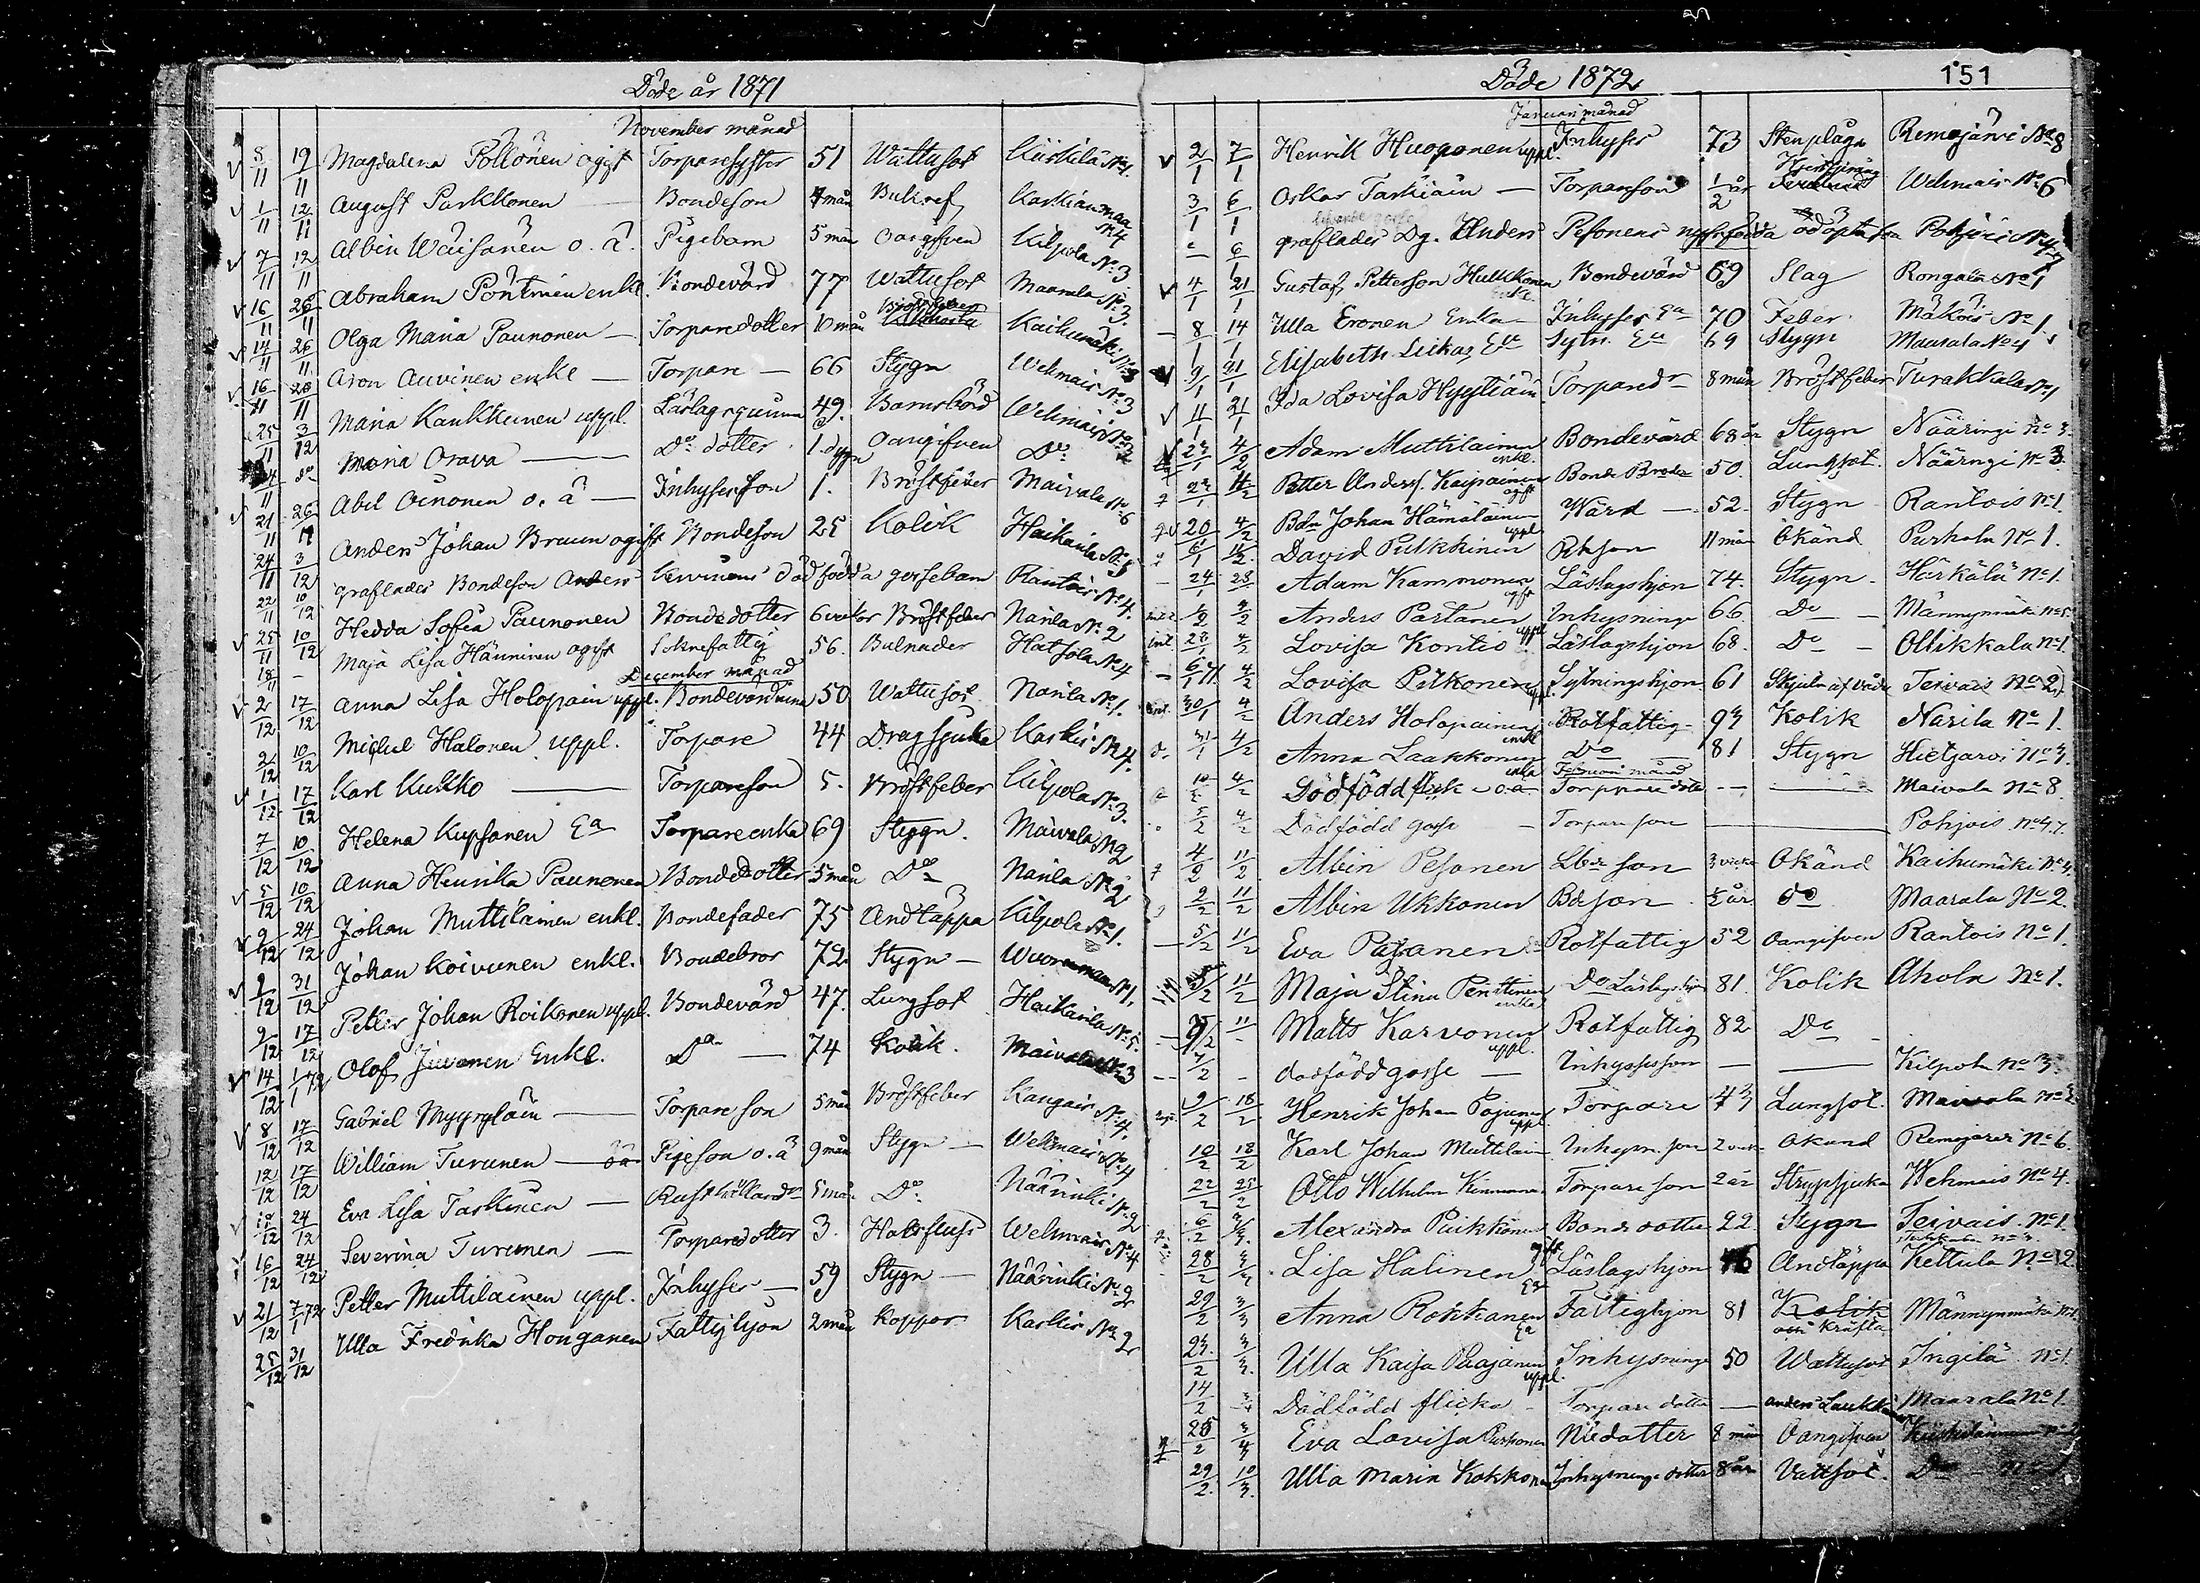 Döde år 1871
November månad
5/11 19/11 Magdalena Pöllönen ogift Torparesyster 51 Wattusot Kiiskilä No 1.
1/11 12/11 August Parkkonen Bondeson 4 mån Bukref Karkiänmaa No 4
7/11 12/11 Albin Wäisänen o. ä. Pigebarn 5 mån Oangifven Kilpola No 3
16/11 26/11 Abraham Pöntinen enkl. Bondevärd 77 Wattusot Maarala No 3.
14/11 26/11 Olga Maria Paunonen — Torparedotter 10 mån Bröstfeber Kaihumäki No 3
16/11 26/11 Aron Auvinen enkl — Torpare — 66 Stygn Wehmais No 3
25/11 3/12 Maria Kaukkunen uppl. Läslagsqvinna 49. Barnsbörd Wehmais No 2
Maria Orava — Do dotter 1 dygn Oangifven Do
21/11 26/11 Abel Oinonen o. ä — Inhyses son 1. Bröstfeber Maivala No 6
24/11 3/12 Anders Johan Bruun ogift Bondeson 25 Kolik Haikarila No 5
22/11 10/12 graflades Bondeson Anders Kervinens dödfödda gossebarn Rantois No 4.
25/11 10/12 Hedda Sofia Paunonen Bondedotter 6 veckor Bröstfeber Narila No 2
18/11 — Maja Lisa Hänninen ogift Soknefattig 56. Bulnader Hatsola No 4
December månad
2/12 17/12 Anna Lisa Holopain uppl. Bondevärdinna 50 Wattusot Narila No 1.
2/12 10/12 Michel Halonen uppl. Torpare 44 Dragsjuka Karkis No 4.
1/12 17/12 Karl Kukko — Torpareson 5. Bröstfeber Kilpola No 3.
7/12 10/12 Helena Kupsanen Ea Torpareenka 69 Stygn. Maivala No 2
5/12 10/12 Anna Henrika Paunonen Bondedotter 5 mån Do Narila No 2
9/12 24/12 Johan Muttilainen enkl. Bondefader 75 Andtäppa Kilpola No 1.
9/12 31/12 Johan Koivunen enkl. Bondebror 72 Stygn — Wuorenmaa No 1.
9/12 17/12 Petter Johan Roikonen uppl. Bondevärd 47. Lungsot Haikarila No 5.
14/12 1/1 72 Olof Juvonen Enkl. Do — 74 Kolik. Maivala No 3
8/12 17/12 Gabriel Myyryläin — Torpareson 5 mån Bröstfeber Kangais No 4.
12/12 17/12 William Turunen — Pigeson o. ä 9 mån Stygn — Wehmais No 4
24/12 Eva Lisa Tarkinen — Rusthållard 5 mån Do. Näärinki No 2
16/12 24/12 Severina Turunen — Torparedotter 3. Halsfluss Wehmais No 4
21/12 7/1 72 Petter Muttilainen uppl. Inhyses — 59 Stygn — Näärinki No 2
25/12 31/12 Ulla Fredrika Honganen Fattighjon 2 mån Koppor Karkis No 2
Döde 1872
151
Januari månad
2/1 7/1 Henrik Huoponen uppl. Inhyses 73 Stenplåga Remojärvi No 8
3/1 6/1 Oskar Tarkiain — Torpareson 1/2 år Wehmais No 6
graflades Dg. Anders Pesonens nyssfödda odöpta son Pohjois No 47
4/1 21/1 Gustaf Petterson Hullkkonen Bondevärd 69 Slag Rongala No 1
8/1 14/1 Ulla Eronen Enka — Inhyses Ea 70 Feber Mäkois No 1.
9/1 21/1 Elisabeth Liikas Ea Sytn. Ea 69 Stygn Maarala No 4
11/1 21/1 Ida Lovisa Hyytiäin Torparedr 8 mån Bröstfeber Turakkala No 1
23/1 4/2 Adam Muttilainen enkl. Bondevärd 68 år Stygn Nääringi No 3.
Petter Anders. Kaipainen ogift Bonde Broder 50. Lungsot. Nääringi No 3.
20/1 4/2 Bdn Johan Hämäläinen uppl Wärd — 52. Stygn Rantois No 1.
David Pulkkinen Rhson 11 mån Okänd Purhola No 1.
24/1 Adam Kammonen Läslagshjon 74. Stygn — Härkälä No 1.
Anders Partanen Inhysninge 66. Do — Männynmäki No 5
23/1 4/2 Lovisa Kontio uppl Läslagshjon 68. Do — Ollikkala No 1.
4/2 Lovisa Pitkonen Sytningshjon 61 Skjuten af våda Teivais No 2.
30/1 4/2 Anders Holopainen enkl Rotfattig 93 Kolik Narila No 1.
31/1 4/2 Anna Laakkonen enka Do 81 Stygn Hietjärvi No 3.
Februari månad
4/2 Dödfödd flick o. ä. Torpare dotter — — Maivala No 8
5/2 4/2 Dödfödd gosse — Torpareson — Pohjois No 47.
4/2 11/2 Albin Pesonen son 3 veck Okänd Kaihumäki No 4.
2/2 11/2 Albin Ukkonen Bdeson 1/2 år do Maarala No 2.
5/2 11/2 Eva Paganen Rotfattig 52 Oangifven Rantois No 1.
11/2 Maja Stina Penttinen enka Do Läslagshjon 81. Kolik Ahola No 1.
Matts Karvonen uppl. Rotfattig 82 Do
7/2 — dödfödd gosse — Inhysesson — — Kilpola No 3.
9/2 18/2 Henrik Johan Pajunen uppl. Torpare 43 Lungsot. Maivala No 2
10/2 18/2 Karl Johan Muttilain Inhysn. son 2 veck Okänd Remojärvi No 6.
22/2 25/2 Otto Wilhelm Kinnunen Torpareson 2 år Strypsjuka Wehmais No 4.
6/2 Alexandra Puikkonen Bondedotter 22 Stygn Teivais No 1.
28/2 3/3 Lisa Halinen Läslagshjon 46 Andtäppa Kettula No 2
29/2 3/3 Anna Rokkanen Ea Fattighjon 81 Kolik och Kräfta Männynmäki No 1.
Ulla Kaisa Paajanen uppl. Inhysninge 50 Wattusot Ingilä No 1.
14/2 Dödfödd flicka — Torparedotter — Anders Laukka Maarala No 1.
Eva Lovisa Piedotter 8 mån Oangifven
29/2 10/3 Ulla Maria Kokkonen Inhysninge dotter 8 år Vattsot.